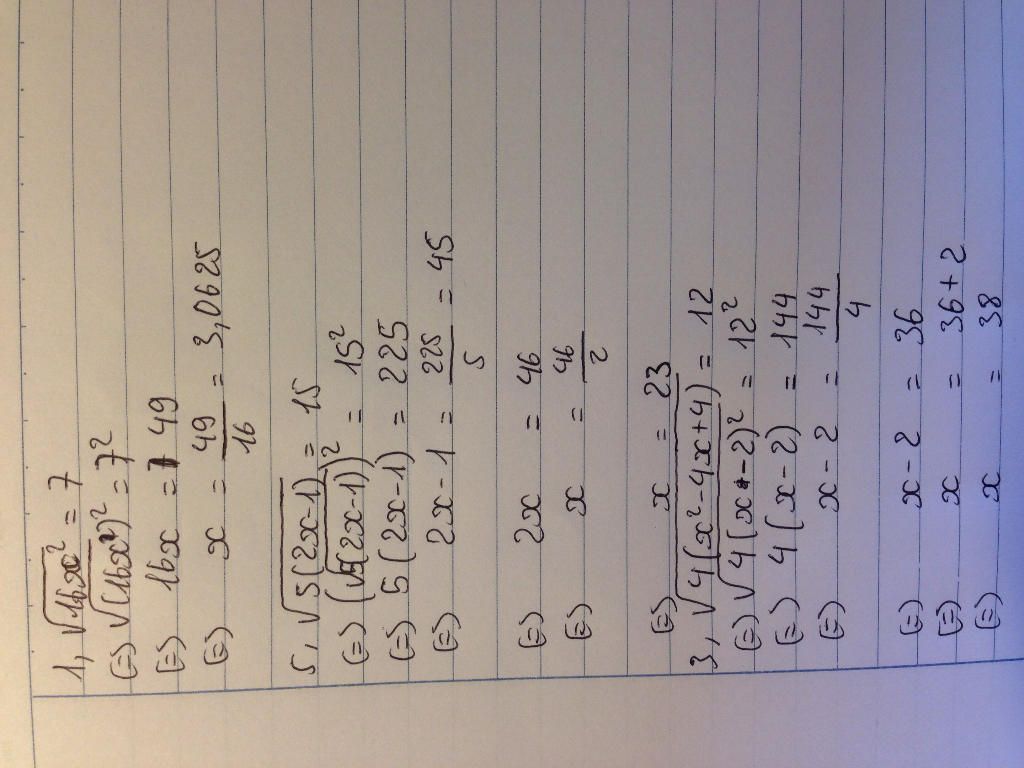 1, √16x² = 7
(=) √(16x²)² = 7²
(=) 16x = 49
(=) x = 49/16 = 3,0625
5, √5(2x-1) = 15
(=) (√5(2x-1))² = 15²
(=) 5(2x-1) = 225
(=) 2x-1 = 225/5 = 45
(=) 2x = 46
(=) x = 46/2
(=) x = 23
3, √4(x²-4x+4) = 12
(=) √4(x-2)² = 12²
(=) 4(x-2) = 144
(=) x-2 = 144/4
(=) x-2 = 36
(=) x = 36+2
(=) x = 38